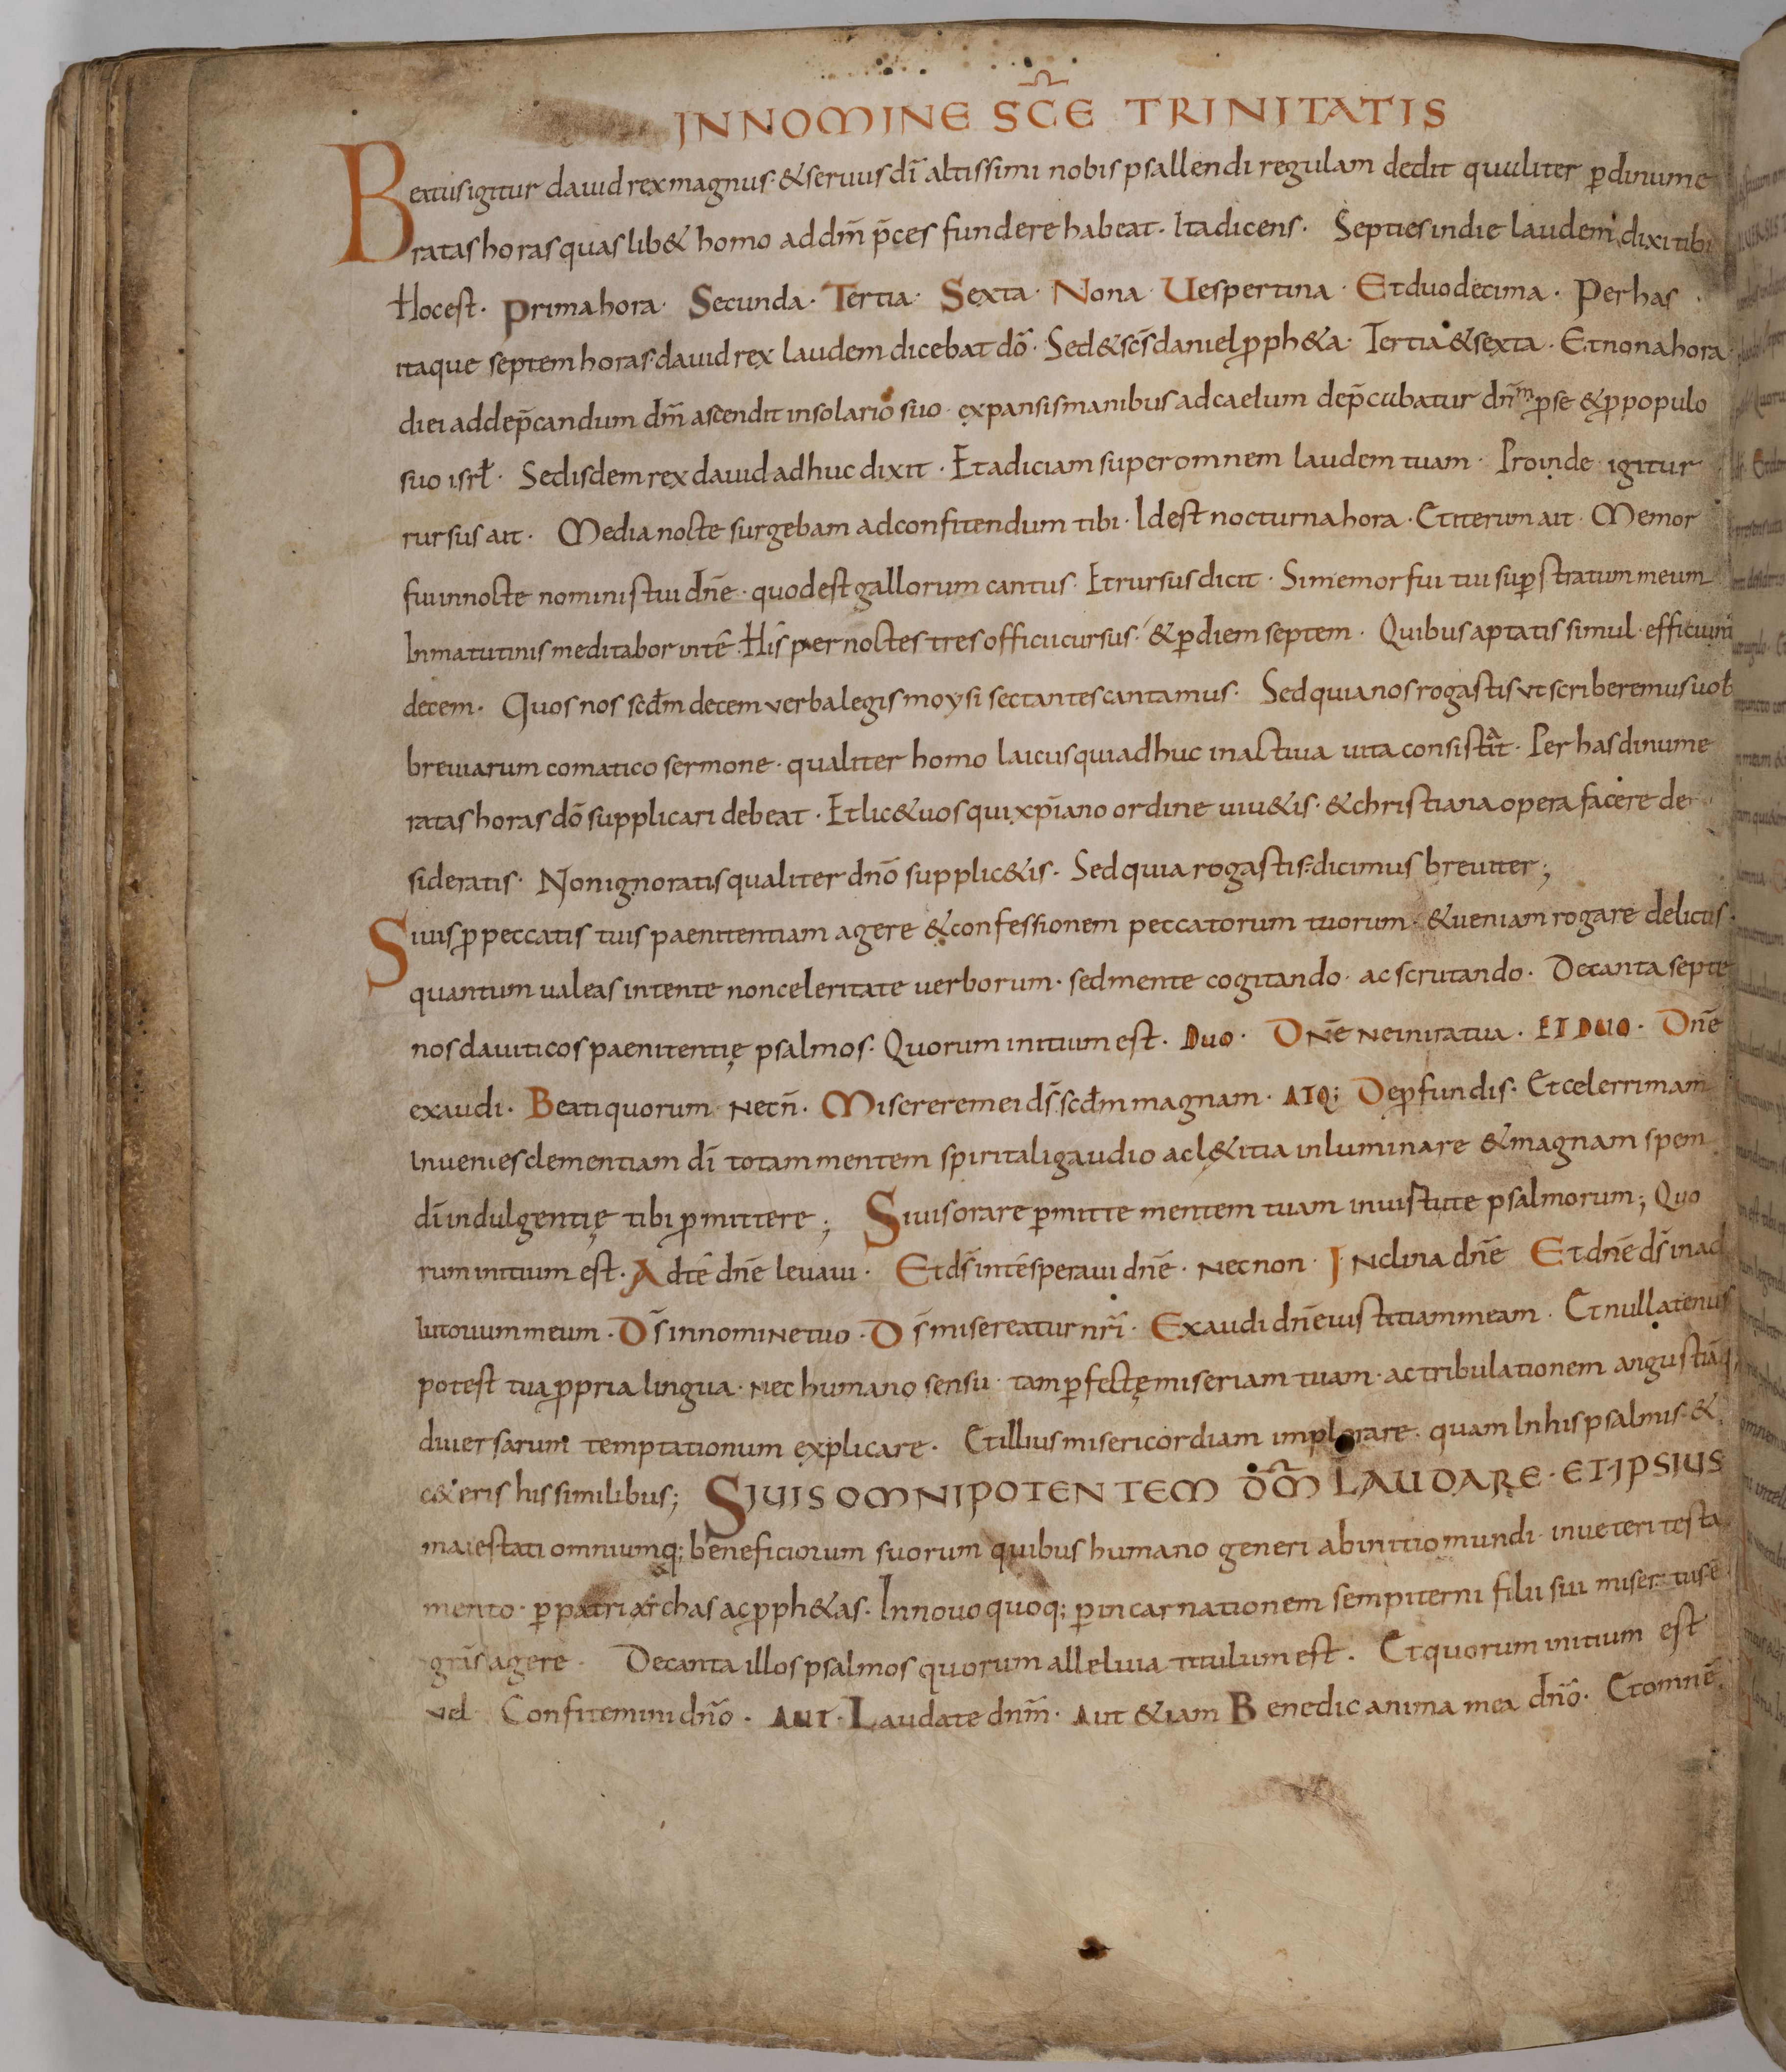 INNOMINE SC̄E TRINITATIS
Beatusigitur dauid rex magnus · & seruus dī altissimi nobis psallendi regulam dedit qualiter ꝑdinume
ratas horas quaslib& homo ad dm̄ p̄ces fundere habeat · Ita dicens · Septies in die laudem dixi tibi
Hoc est · Prima hora · Secunda · Tertia · Sexta · Nona · Uespertina · Et duodecima · Per has
itaque septem horas dauid rex laudem dicebat dō · Sed & sc̄s daniel ꝓph&a · Tertia & sexta · Et nona hora
diei ad dep̄candum dm̄ ascendit in solario suo · expansis manibus ad caelum dep̄cabatur dn̄m ꝓ se & ꝓ populo
suo isrł · Sed isdem rex dauid adhuc dixit · Et adiciam super omnem laudem tuam · Proinde igitur
rursus ait · Media nocte surgebam ad confitendum tibi · Id est nocturna hora · Et iterum ait · Memor
fui in nocte nominis tui dn̄e · quod est gallorum cantus · Et rursus dicit · Si memor fui tui suꝑ stratum meum
In matutinis meditabor in tē · His per noctes tres officii cursus · & ꝑ diem septem · Quibus aptatis simul · efficiunt̄
decem · Quos nos scd̄m decem verba legis moysi sectantes cantamus · Sed quia nos rogastis vt scriberemus uob̄
breuiarum comatico sermone · qualiter homo laicus qui adhuc in actiua uita consistit · Per has dinume
ratas horas dō supplicari debeat · Et lic& uos qui xp̄iano ordine uiu&is · & christiana opera facere de
sideratis · Non ignoratis qualiter dn̄o supplic&is · Sed quia rogastis dicimus breuiter;
Si uis ꝓ peccatis tuis paenitentiam agere & confessionem peccatorum tuorum · & ueniam rogare delictis ·
quantum ualeas intente non celeritate uerborum · sed mente cogitando · ac scrutando · Decanta septe
nos dauiticos paenitentię psalmos · Quorum initium est · Duo · Dn̄e ne in ira tua · ET DUO · Dn̄e
exaudi · Beati quorum · necn̄ · Misereremei ds̄ scd̄m magnam · ATQ; De ꝓfundis · Et celerrimam
Inuenies clementiam dī totam mentem spiritali gaudio ac l&itia inluminare & magnam spem
dī indulgentię tibi ꝓmittere ; Si uis orare ꝑmitte mentem tuam in uistute psalmorum ; Quo
rum initium est · Ad tē dn̄e leuaui · Et ds̄ in tē speraui dn̄e · Necnon · Inclina dn̄e Et dn̄e ds̄ in ad
iutorium meum · Ds̄ in nomine tuo · Ds̄ misereatur nr̄i · Exaudi dn̄e iustitiam meam · Et nullatenus
potest tua ꝓpria lingua · nec humano sensu · tam ꝑfectę miseriam tuam · ac tribulationem angustiāq;
diuersarum temptationum explicare · Et illius misericordiam implorare · quam In his psalmis · &
c&eris his similibus; SI UIS OMNIPOTENTEM D̄M LAUDARE · ET IPSIUS
maiestati omniumq; beneficiorum suorum quibus humano generi ab initio mundi · in ueteri testa
mento · ꝑ patriarchas ac ꝓph&as · In nouo quoq; ꝑ incarnationem sempiterni filii sui misertus ē
gr̄as agere · Decanta illos psalmos quorum alleluia titulum est · Et quorum initium est
vel Confitemini dn̄o · AUT · Laudate dnm̄ · Aut &iam Benedic anima mea dn̄o · Et omnē